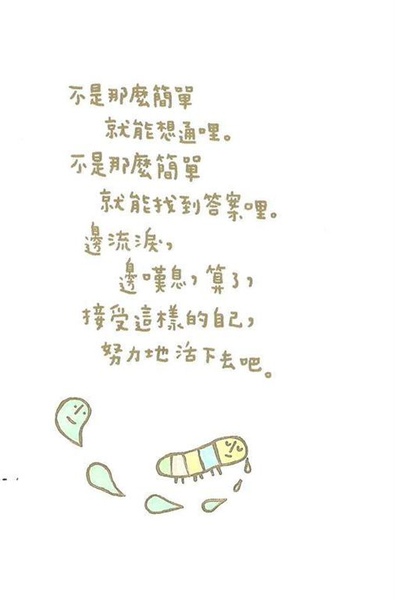 不是那麼簡單
就能想通哩。
不是那麼簡單
就能找到答案哩。
邊流淚，
邊嘆息，算了，
接受這樣的自己，
努力地活下去吧。